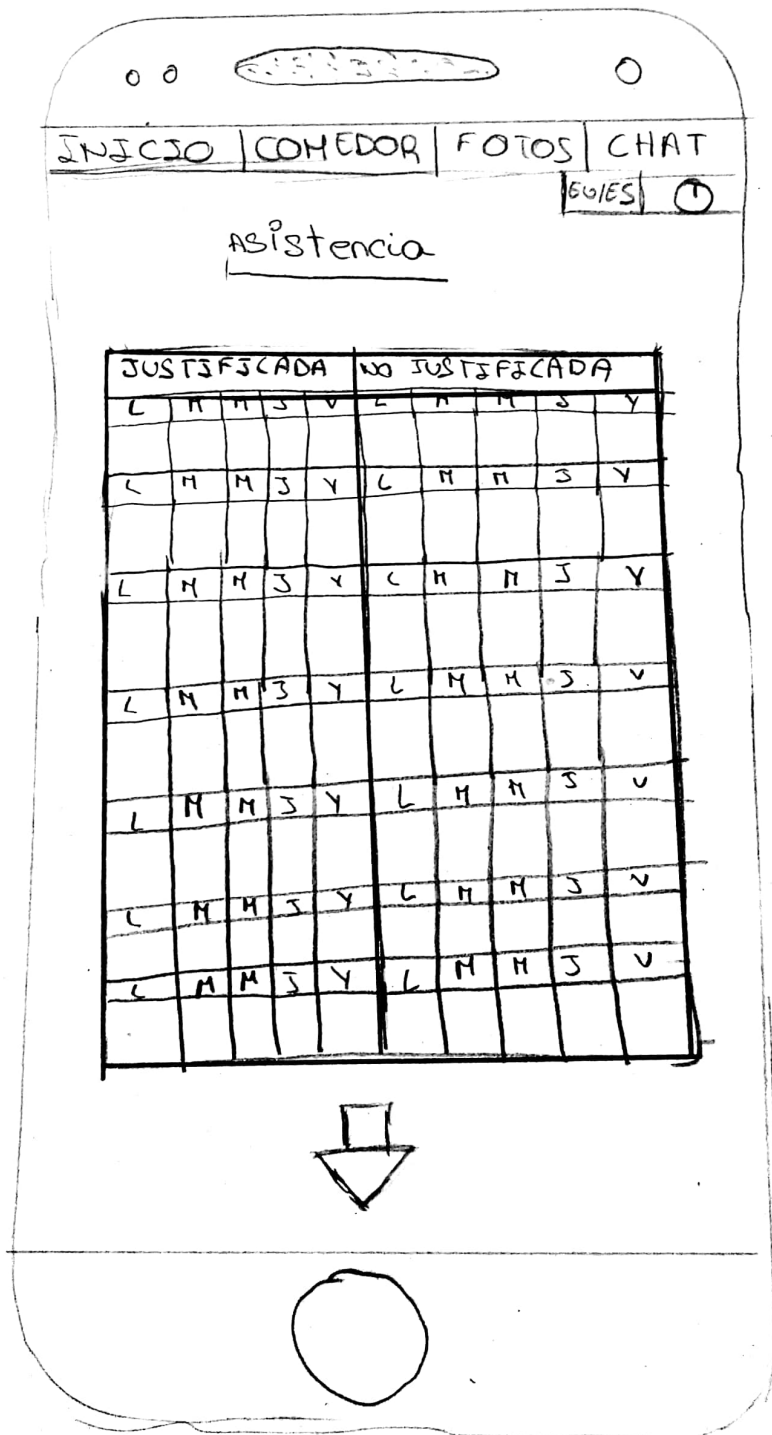 INICIO | COMEDOR | FOTOS | CHAT
EU/ES
Asistencia
JUSTIFICADA NO JUSTIFICADA
L M M J V L M M J V
L M M J V L M M J V
L M M J V L M M J V
L M M J V L M M J V
L M M J V L M M J V
L M M J V L M M J V
L M M J V L M M J V